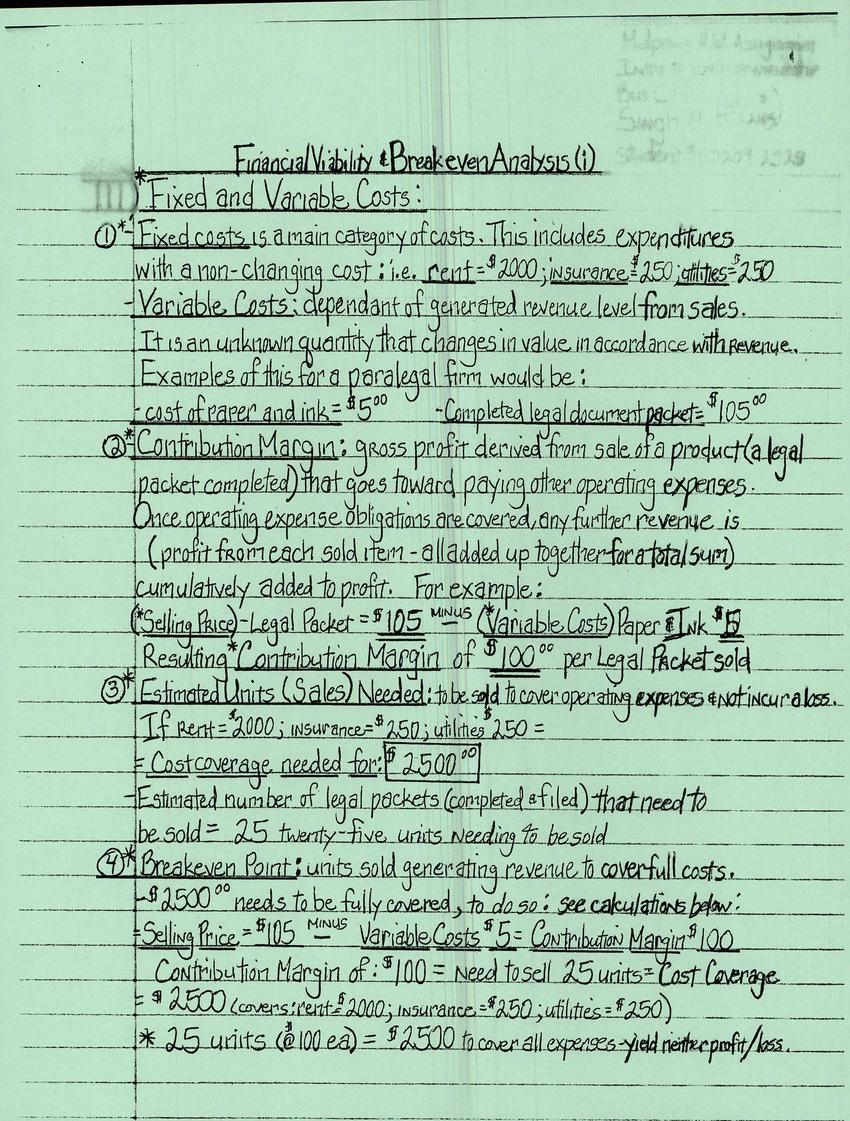 Financial Viability & Breakeven Analysis (i)
* Fixed and Variable Costs:
① *- Fixed costs is a main category of costs. This includes expenditures
with a non-changing cost: i.e. rent = $2000; insurance = $250; utilities = $250
- Variable Costs: dependant of generated revenue level from sales.
It is an unknown quantity that changes in value in accordance with Revenue.
Examples of this for a paralegal firm would be:
- cost of paper and ink = $5.00 - Completed legal document packet = $105.00
② *- Contribution Margin: gross profit derived from sale of a product (a legal
packet completed) that goes toward paying other operating expenses.
Once operating expense obligations are covered, any further revenue is
(profit from each sold item - all added up together for a total sum)
cumulatively added to profit. For example:
(*Selling Price) - Legal Packet = $105 MINUS (*Variable Costs) Paper & Ink $5
Resulting *Contribution Margin of $100.00 per Legal Packet sold
③ * Estimated Units (Sales) Needed: to be sold to cover operating expenses & not incur a loss.
If Rent = $2000; insurance = $250; utilities $250 =
= Cost coverage needed for: $2500.00
- Estimated number of legal packets (completed & filed) that need to
be sold = 25 twenty-five units needing to be sold
④ * Breakeven Point: units sold generating revenue to cover full costs.
- $2500.00 needs to be fully covered, to do so: see calculations below:
= Selling Price = $105 MINUS Variable Costs $5 = Contribution Margin $100
Contribution Margin of: $100 = Need to sell 25 units = Cost Coverage
= $2500 (covers: rent = $2000; insurance = $250; utilities = $250)
* 25 units (@ $100 ea) = $2500 to cover all expenses - yield neither profit/loss.